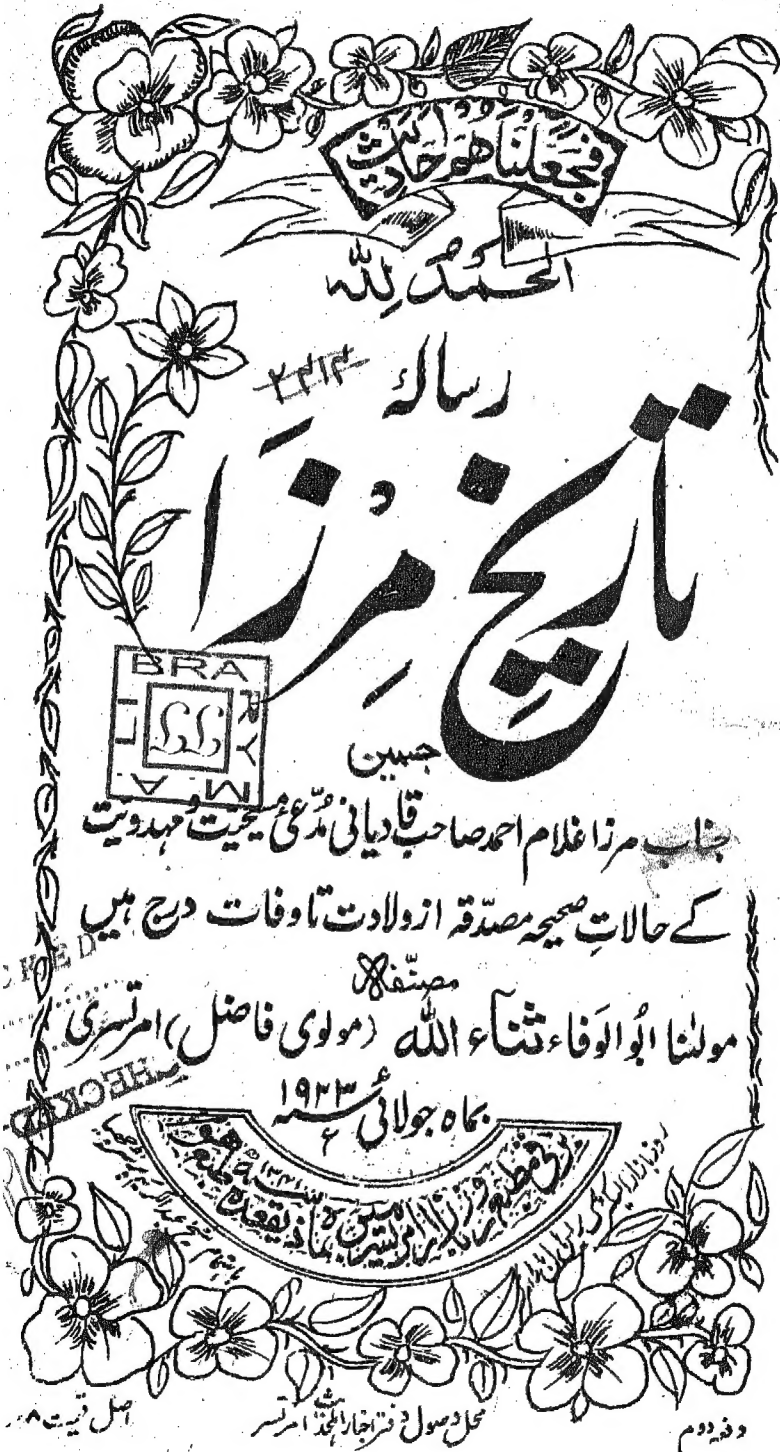 فَجَعَلْنَاهُمْ اَحَادِيْثَ
الحمدُ لِلّٰہ
رسالہٴ
۲۴۱۴
تاریخِ مُرزَا
جسمیں
جناب مرزا غلام احمد صاحب قادیانی مدّعیٔ مسیحیت و مہدویت
کے حالاتِ صحیحہ مصدّقہ از ولادت تا وفات درج ہیں
مصنّفہ
مولٰنا ابُو الوَفاء ثناء اللّٰہ (مولوی فاضل) امرتسری
بماہ جولائی سنہ ۱۹۲۳ء
میں
طبع
LIBRARY
A.M.
CHECKED
CKED
دفعہ دوم
محل وصول دفتر اخبار اہلحدیث امرتسر
اصل قیمت ۸